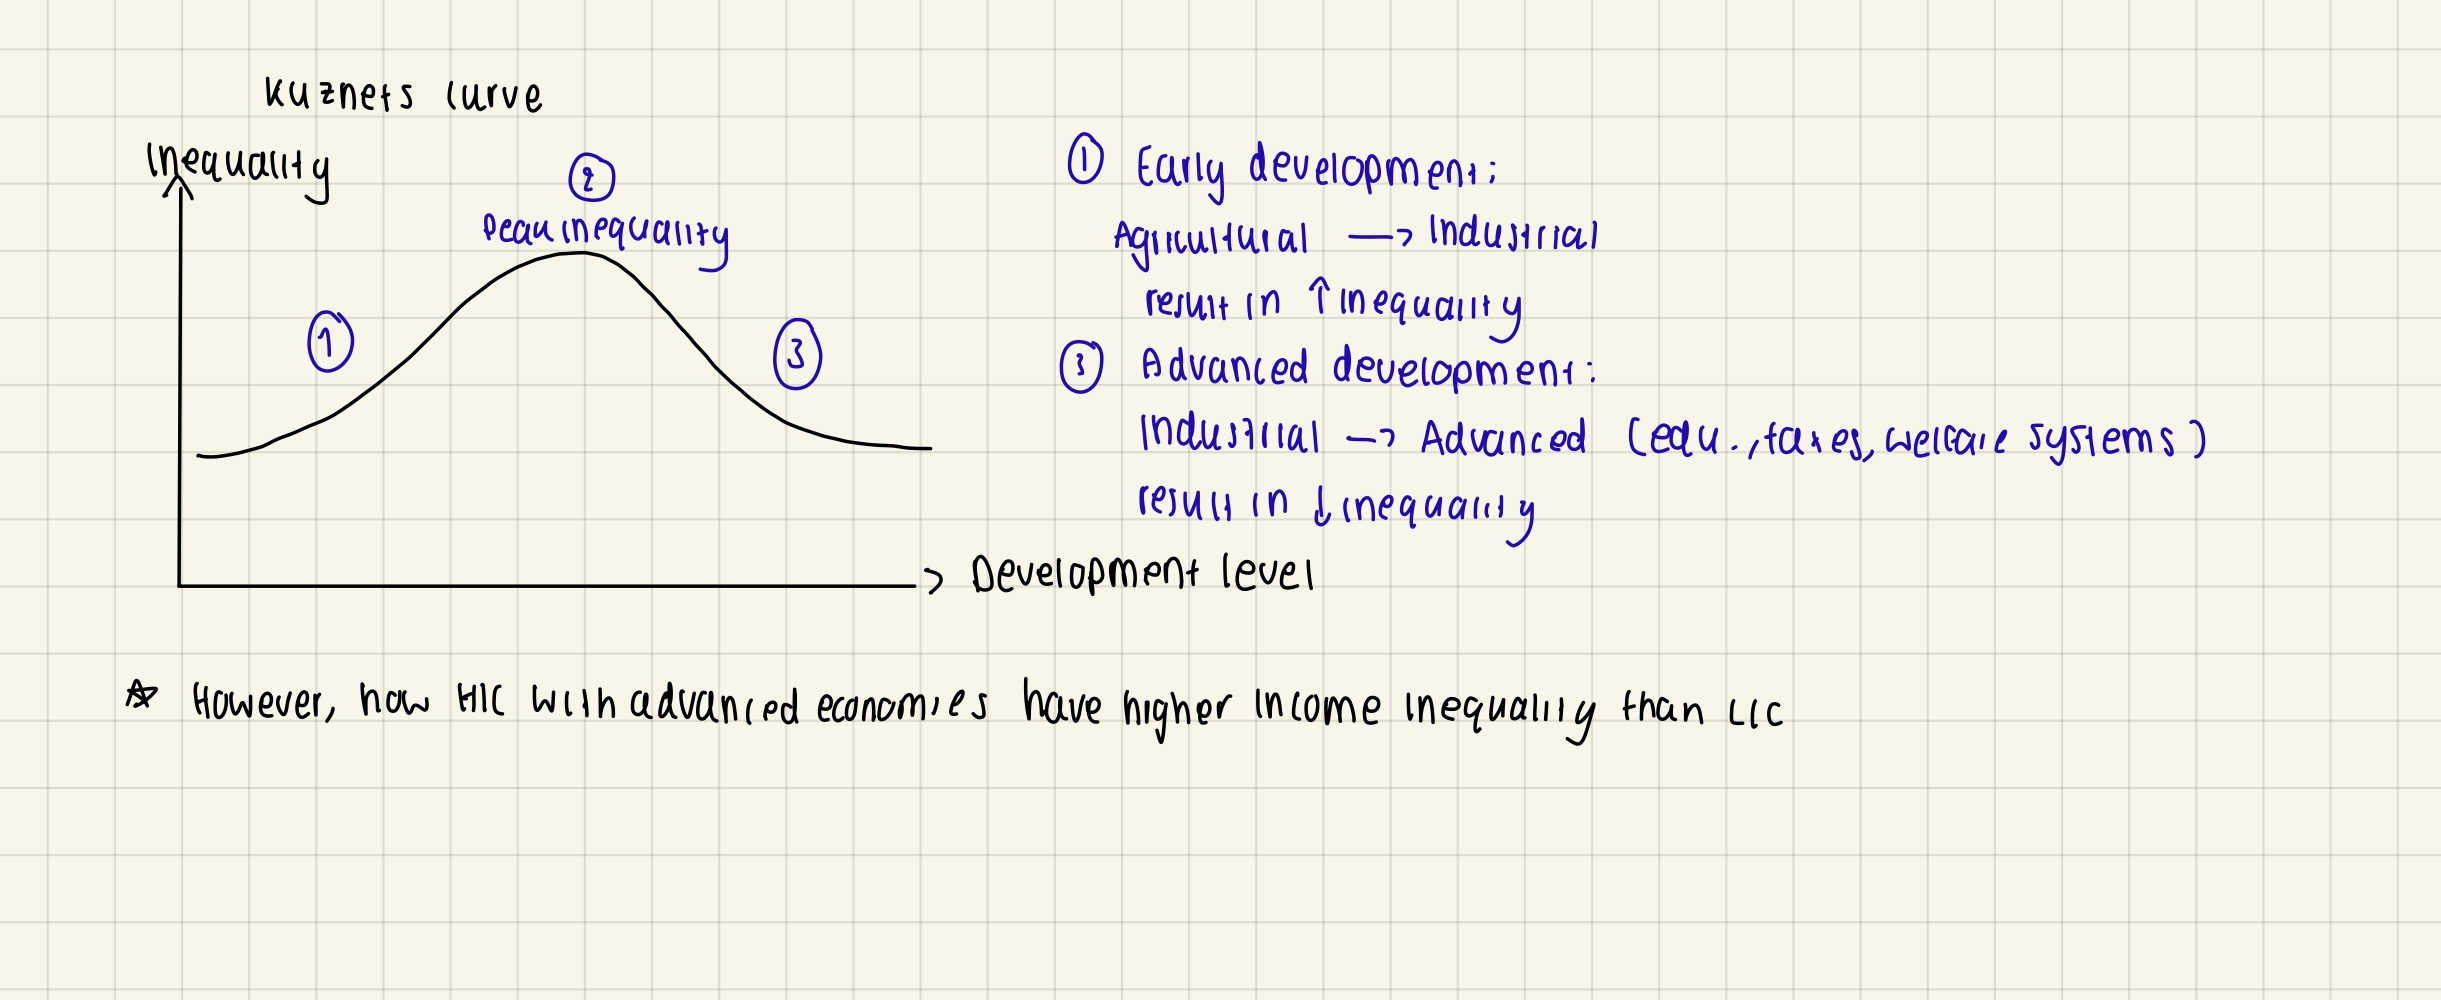 Kuznets curve
Inequality
②
Peak inequality
①
③
Development level
① Early development:
Agricultural → Industrial
result in ↑ inequality
③ Advanced development:
Industrial → Advanced (edu., taxes, welfare systems)
result in ↓ inequality
☆ However, now HIC with advanced economies have higher income inequality than LIC